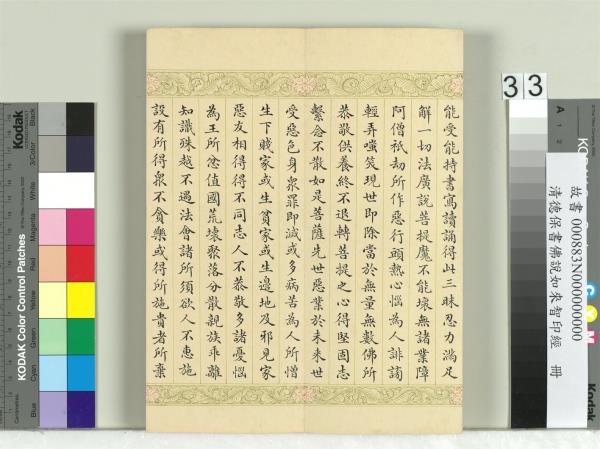 能受能持書寫讀誦得此三昧忍力滿足
解一切法廣說菩提魔不能壞無諸業障
阿僧祇劫所作惡行頭熱心惱為人誹謗
輕弄嗤笑現世即除當於無量無數佛所
恭敬供養終不退轉菩提之心得堅固志
繫念不散如是菩薩先世惡業於未來世
受惡色身眾罪即滅或多病苦為人所憎
生下賤家或生貧家或生邊地及邪見家
惡友相得得不同志人不恭敬多諸憂惱
為王所忿值國荒壞聚落分散親族乖離
知識殊越不遇法會諸所須欲人不惠施
設有所得眾不貪樂或得所施貴者所棄
33
故書 000883N000000000
清德保書佛說如來智印經 冊
Kodak
KODAK Color Control Patches
Black
3/Color
White
Magenta
Red
Yellow
Green
Cyan
Blue
Kodak
A
1
2
C
Y
M